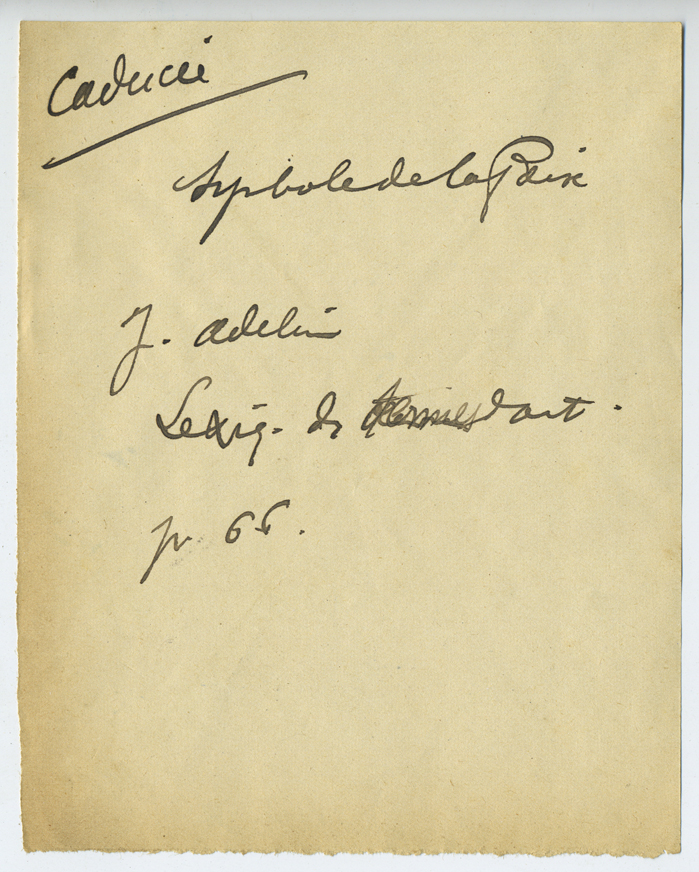 Caducée
Symbole de la Paix
J. Adeline
Lexiq. de termes d'art.
p. 66.